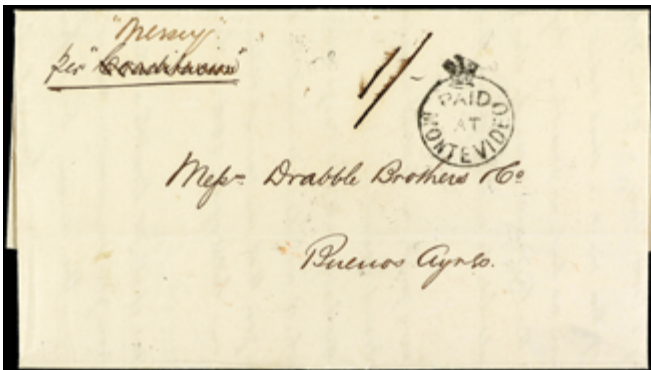 "Mersey"
per
1/-
PAID
AT
MONTEVIDEO
Messrs Drabble Brothers & Co
Buenos Ayres.